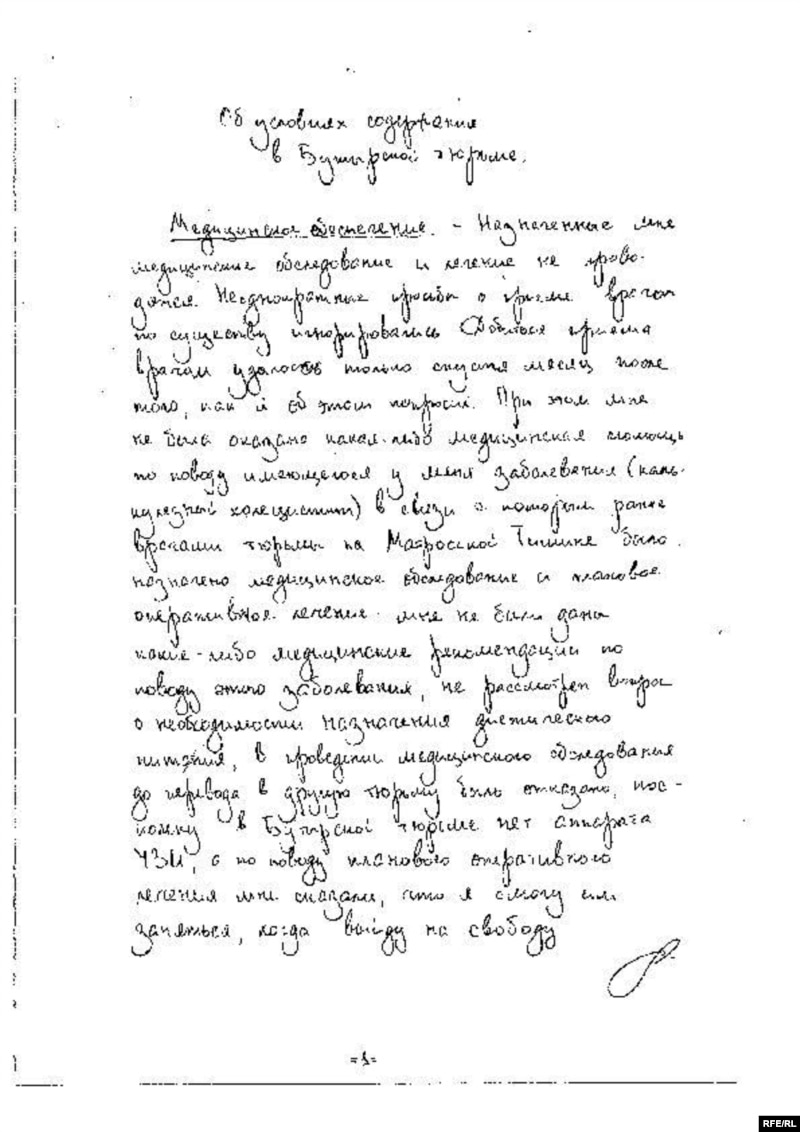 Об условиях содержания
в Бутырской тюрьме.
Медицинское обеспечение. - Назначенные мне
медицинские обследование и лечение не прово-
дятся. Неоднократные просьбы о приеме врачом
по существу игнорировались. Добиться приема
врачом удалось только спустя месяц после
того, как я об этом попросил. При этом мне
не была оказана какая-либо медицинская помощь
по поводу имеющегося у меня заболевания (каль-
кулезный холецистит) в связи с которым ранее
врачами тюрьмы на Матросской Тишине было
назначено медицинское обследование и плановое
оперативное лечение. Мне не были даны
какие-либо медицинские рекомендации по
поводу этого заболевания, не рассмотрен вопрос
о необходимости назначения диетического
питания, в проведении медицинского обследования
до перевода в другую тюрьму было отказано, пос-
кольку в Бутырской тюрьме нет аппарата
УЗИ, а по поводу планового оперативного
лечения мне сказали, что я смогу им
заняться, когда выйду на свободу
-1-
RFE/RL